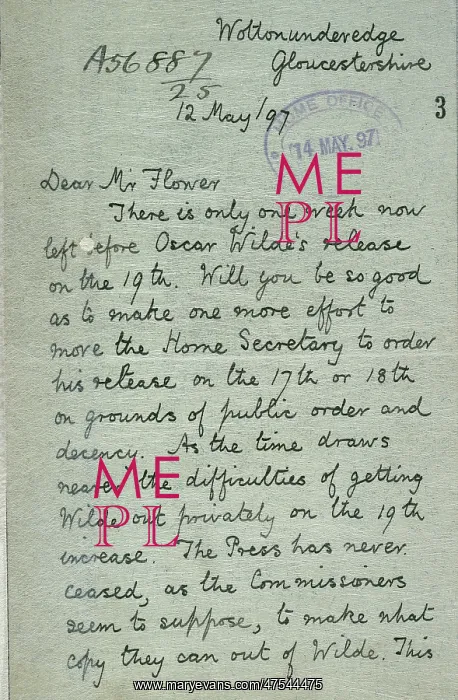 Wottonunderedge
Gloucestershire
A56887
25
12 May/97
HOME OFFICE
14 MAY. 97
3
Dear Mr Flower
There is only one week now
left before Oscar Wilde's release
on the 19th. Will you be so good
as to make one more effort to
move the Home Secretary to order
his release on the 17th or 18th
on grounds of public order and
decency. As the time draws
nearer the difficulties of getting
Wilde out privately on the 19th
increase. The Press has never
ceased, as the Commissioners
seem to suppose, to make what
copy they can out of Wilde. This
ME
PL
ME
PL
www.maryevans.com/47544475